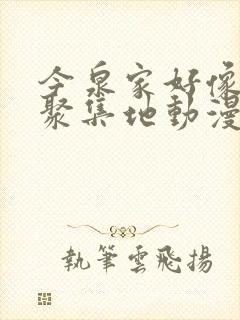 今泉家好像
聚集地動漫
執筆雲飛揚